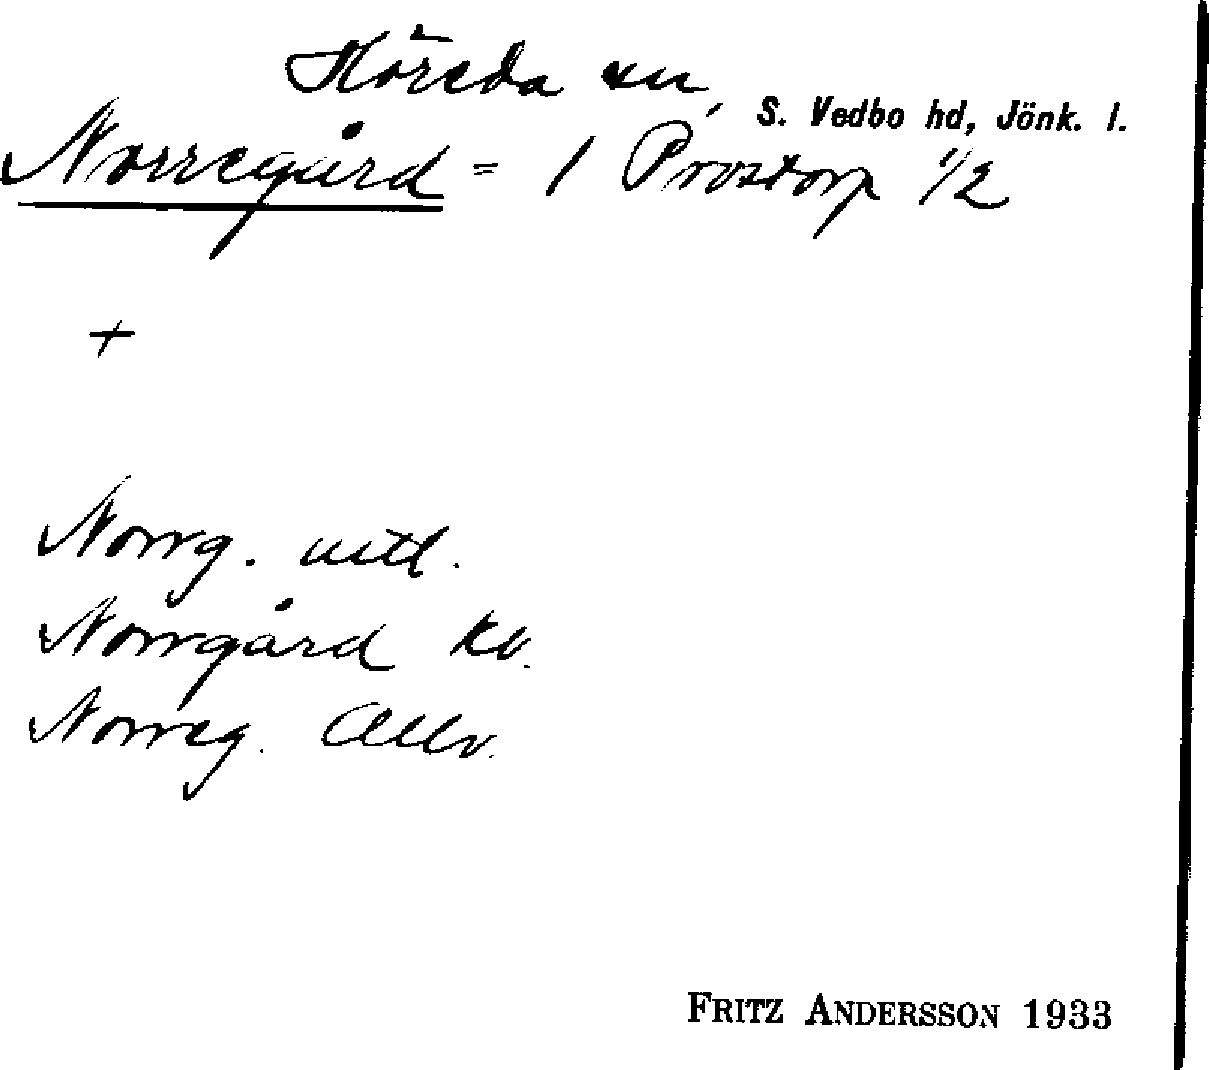 Höreda sn, S. Vedbo hd, Jönk. l.
Norregård = 1 Prostorp 1/2
+
Norrg. uttl.
Norrgård kv.
Norreg. Allv.
FRITZ ANDERSSON 1933